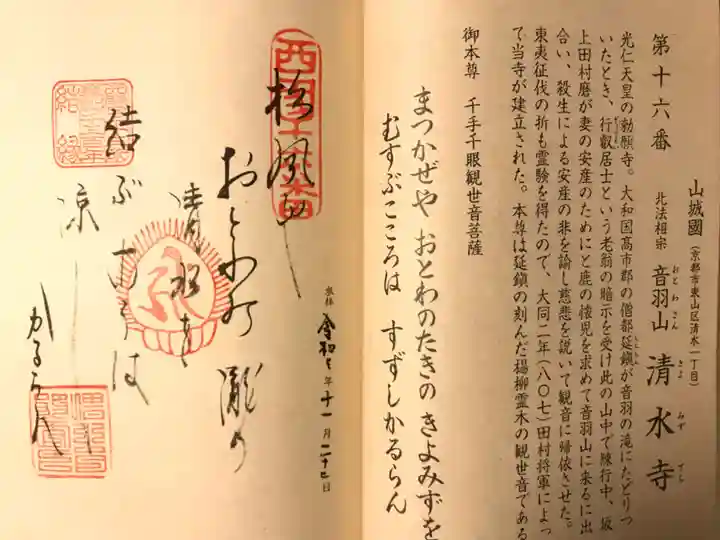 第十六番
山城國(京都市東山区清水一丁目)
北法相宗 音羽山 清水寺
おとわさん きよみずでら
光仁天皇の勅願寺。大和国高市郡の僧都延鎮が音羽の滝にたどりつ
いたとき、行叡居士という老翁の暗示を受け此の山中で練行中、坂
上田村麿が妻の安産のためにと鹿の懐児を求めて音羽山に来るに出
合い、殺生による安産の非を諭し慈悲を説いて観音に帰依させた。
東夷征伐の折も霊験を得たので、大同二年(八〇七)田村将軍によっ
て当寺が建立された。本尊は延鎮の刻んだ楊柳霊木の観世音である
御本尊 千手千眼観世音菩薩
まつかぜや おとわのたきの きよみずを
むすぶこころは すずしかるらん
西国十六番
松風や
おとわの 瀧の
清水を
結ぶ 心は
涼し
かるらん
奉拝 令和 年 十一月 二十 日